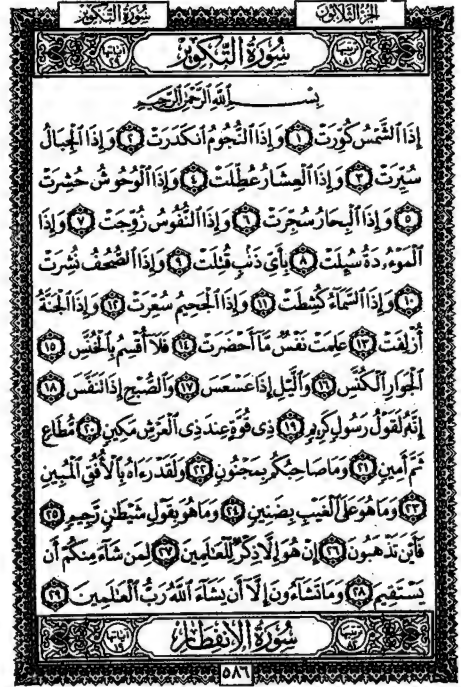 سُورَةُ التَّكْوِيرِ الجُزْءُ الثَّلَاثُونَ
آيَاتُهَا ٢٩ سُورَةُ التَّكْوِيرِ تَرْتِيبُهَا ٨١
بِسْمِ اللَّهِ الرَّحْمَٰنِ الرَّحِيمِ
إِذَا ٱلشَّمْسُ كُوِّرَتْ ١ وَإِذَا ٱلنُّجُومُ ٱنكَدَرَتْ ٢ وَإِذَا ٱلْجِبَالُ
سُيِّرَتْ ٣ وَإِذَا ٱلْعِشَارُ عُطِّلَتْ ٤ وَإِذَا ٱلْوُحُوشُ حُشِرَتْ
٥ وَإِذَا ٱلْبِحَارُ سُجِّرَتْ ٦ وَإِذَا ٱلنُّفُوسُ زُوِّجَتْ ٧ وَإِذَا
ٱلْمَوْءُۥدَةُ سُئِلَتْ ٨ بِأَىِّ ذَنۢبٍ قُتِلَتْ ٩ وَإِذَا ٱلصُّحُفُ نُشِرَتْ
١٠ وَإِذَا ٱلسَّمَآءُ كُشِطَتْ ١١ وَإِذَا ٱلْجَحِيمُ سُعِّرَتْ ١٢ وَإِذَا ٱلْجَنَّةُ
أُزْلِفَتْ ١٣ عَلِمَتْ نَفْسٌ مَّآ أَحْضَرَتْ ١٤ فَلَآ أُقْسِمُ بِٱلْخُنَّسِ ١٥
ٱلْجَوَارِ ٱلْكُنَّسِ ١٦ وَٱلَّيْلِ إِذَا عَسْعَسَ ١٧ وَٱلصُّبْحِ إِذَا تَنَفَّسَ ١٨
إِنَّهُۥ لَقَوْلُ رَسُولٍ كَرِيمٍ ١٩ ذِى قُوَّةٍ عِندَ ذِى ٱلْعَرْشِ مَكِينٍ ٢٠ مُّطَاعٍ
ثَمَّ أَمِينٍ ٢١ وَمَا صَاحِبُكُم بِمَجْنُونٍ ٢٢ وَلَقَدْ رَءَاهُ بِٱلْأُفُقِ ٱلْمُبِينِ
٢٣ وَمَا هُوَ عَلَى ٱلْغَيْبِ بِضَنِينٍ ٢٤ وَمَا هُوَ بِقَوْلِ شَيْطَٰنٍ رَّجِيمٍ ٢٥
فَأَيْنَ تَذْهَبُونَ ٢٦ إِنْ هُوَ إِلَّا ذِكْرٌ لِّلْعَٰلَمِينَ ٢٧ لِمَن شَآءَ مِنكُمْ أَن
يَسْتَقِيمَ ٢٨ وَمَا تَشَآءُونَ إِلَّآ أَن يَشَآءَ ٱللَّهُ رَبُّ ٱلْعَٰلَمِينَ ٢٩
آيَاتُهَا ١٩ سُورَةُ الانفِطَارِ تَرْتِيبُهَا ٨٢
٥٨٦